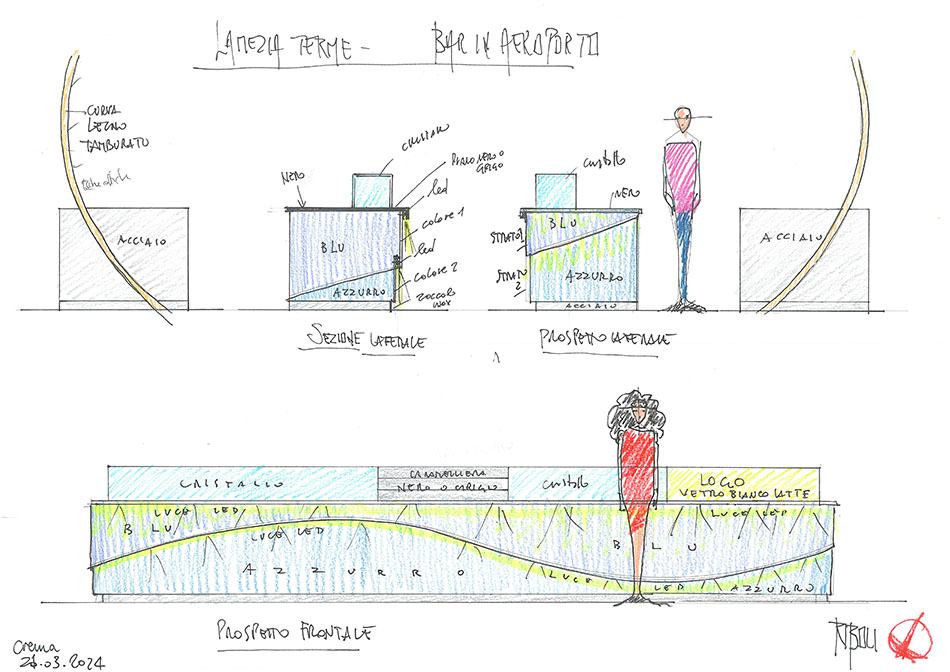 LAMEZIA TERME - BAR IN AEROPORTO
CURVA
LEGNO
TAMBURATO
ACCIAIO
NERO
CRISTALLO
PIANO NERO O
GRIGIO
led
colore 1
led
colore 2
ZOCCOLO
INOX
BLU
AZZURRO
SEZIONE LATERALE
cristallo
NERO
STRATO 1
STRATO
2
BLU
AZZURRO
ACCIAIO
PROSPETTO LATERALE
ACCIAIO
CRISTALLO
CARAMELLIERA
NERO O GRIGIO
cristallo
LOGO
VETRO BIANCO LATTE
LUCE LED
LUCE LED
BLU
LUCE LED
BLU
AZZURRO
LUCE LED
AZZURRO
PROSPETTO FRONTALE
Crema
RIBOLI